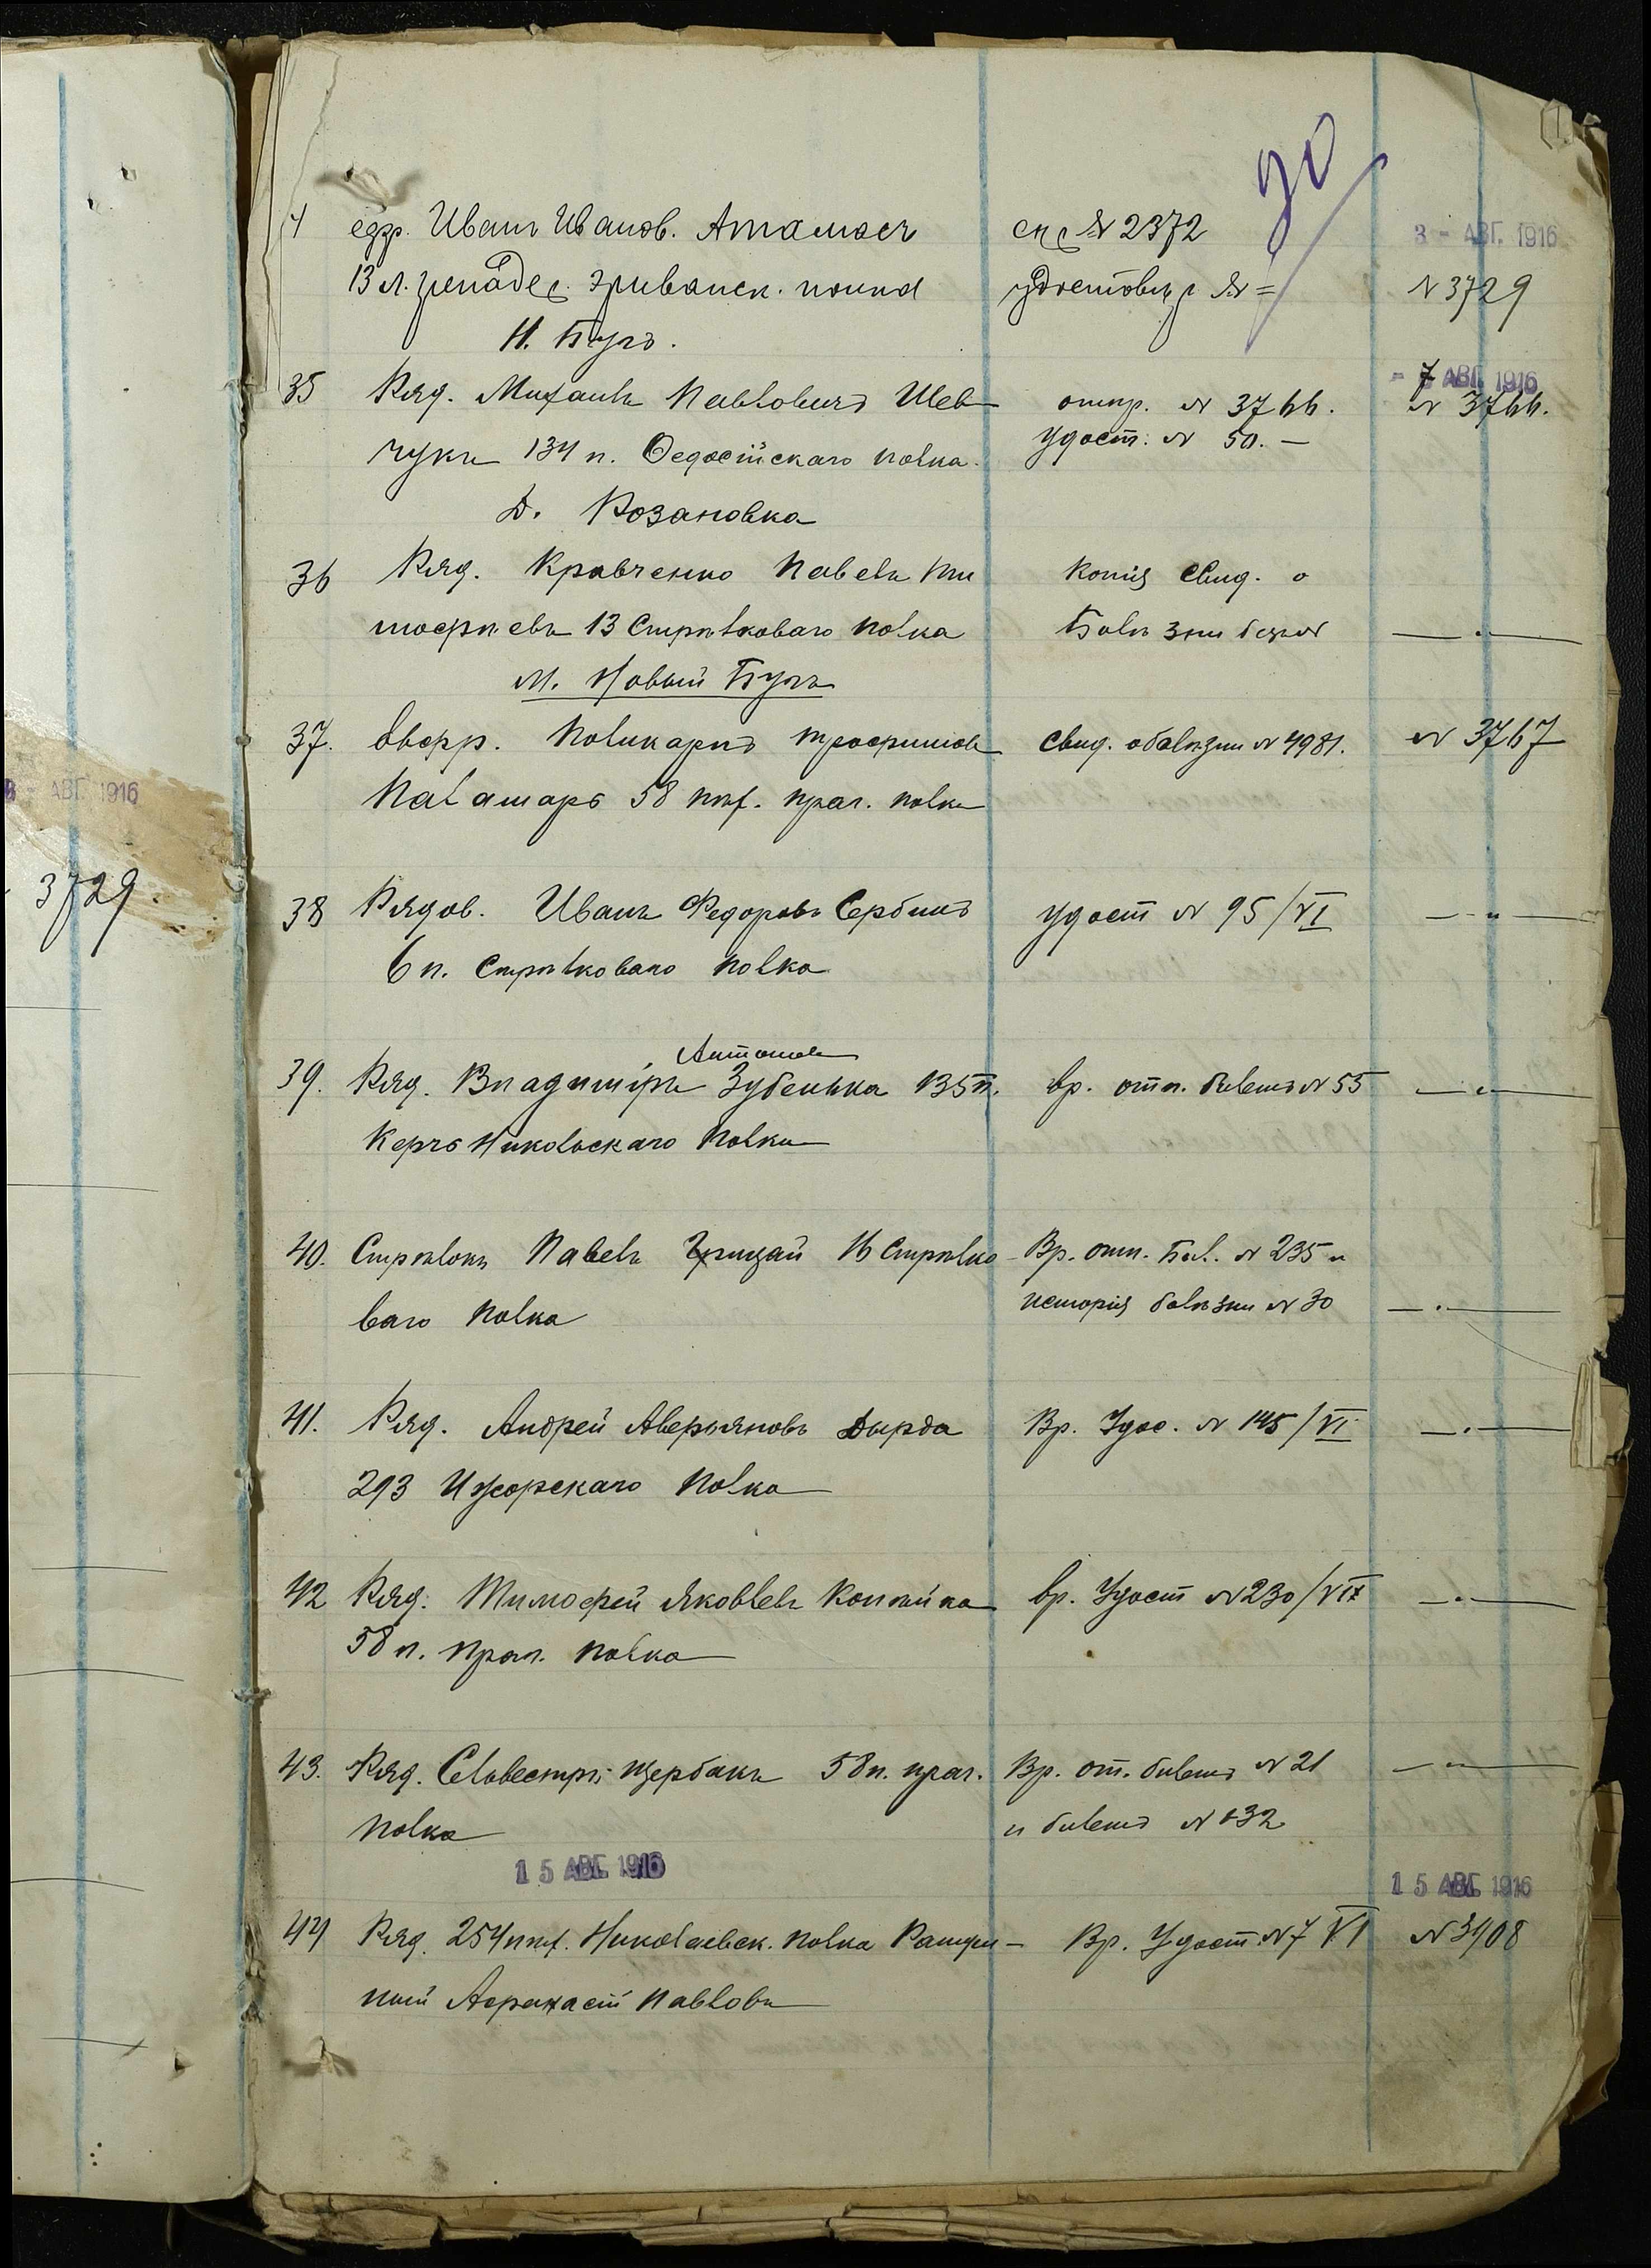 3 - АВГ. 1916
3729.
30
4 ефр. Иванъ Иванов. Атамасъ
сп с № 2372
3 - АВГ. 1916
13 л. гренадер. Эриванск. полка
удостовер с № =
№ 3729
Н. Бугъ.
- 7 АВГ. 1916
35 Ряд. Михаилъ Павловичъ Шев
отпр. № 3766.
№ 3766.
чукъ 134 п. Ѳеодосійскаго полка.
Удост. № 50. —
Д. Розановка
36 Ряд. Кравченко Павелъ Ти
Копія свид. о
мофѣевъ 13 Стрѣлковаго полка
Болѣзни без №
— „ —
м. Новый Бугъ
37. Ефр. Поликарпъ Трофимов
Свид. о болѣзни № 4981.
№ 3767
Паламарь 58 пѣх. праг. полка
38 Рядов. Иванъ Федоровъ Сербинъ
Удост № 95/VI
— „ —
6 п. Стрѣлковаго полка
Антонов
39. Ряд. Владиміръ Зубенька 135 п.
Вр. отп. билетъ № 55
— „ —
Керчь Никольскаго Полка
40. Стрѣлокъ Павелъ Грицай 16 Стрѣлко
Вр. отп. Бил. № 235 и
ваго полка
исторія болѣзни № 30
— „ —
41. Ряд. Андрей Аверьяновъ Дырда
Вр. Удос. № 145/VI
— „ —
293 Ижорскаго Полка
42 Ряд. Тимофей Яковлевъ Копѣйка
Вр. Удост № 230/VII
— „ —
58 п. праг. полка
43. Ряд. Селивестръ Щербакъ 58 п. праг.
Вр. от. билетъ № 21
— „ —
Полка
и билетъ № 132
15 АВГ. 1916
15 АВГ. 1916
44 Ряд. 254 пѣх. Николаевск. полка Ратуш-
Вр. Удост. № 7 VI
№ 3908
ный Афанасій Павловъ